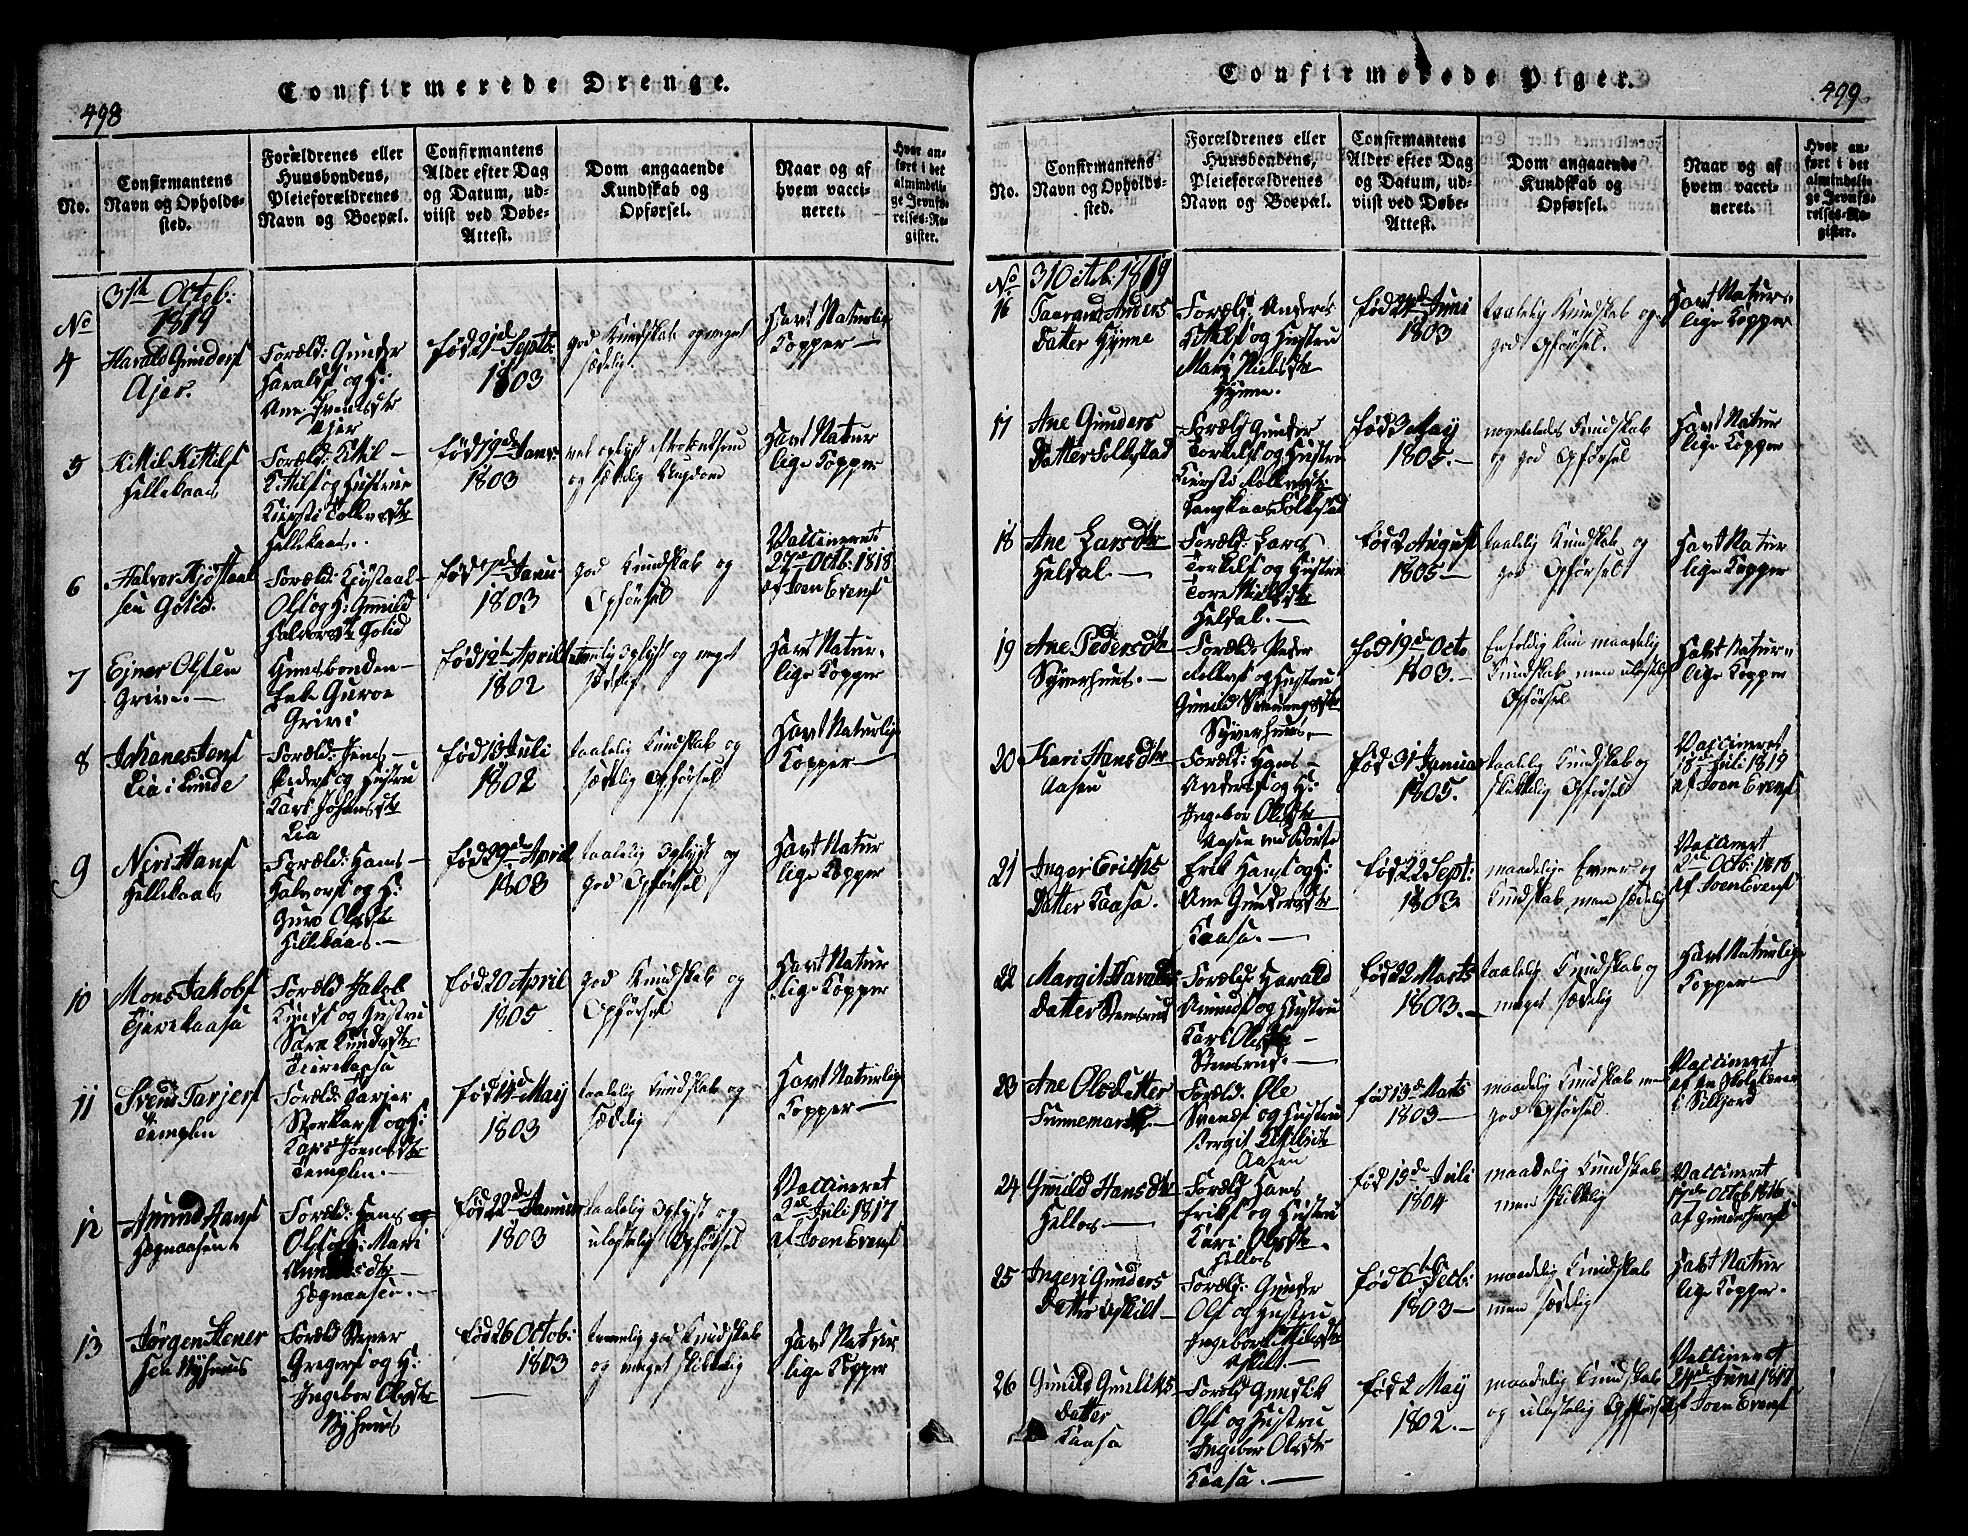 498
Confirmerede Drenge.
No.
Confirmantens
Navn og Opholds-
sted.
Forældrenes eller
Huusbondens,
Pleieforældrenes
Navn og Boepæl.
Confirmantens
Alder efter Dag
og Datum, ud-
viist ved Døbe-
Attest.
Dom angaaende
Kundskab og
Opførsel.
Naar og af
hvem vacci-
neret.
Hvor an-
ført i det
almindeli-
ge Jevnfø-
relses-Re-
gister.
31te Octob:
1819
No
4
Harald Gunders
Ajer.
Foræld: Gunder
Haralds og H:
Ane Ivensdtr
Ajer
Fød 21de Septb:
1803
god Kundskab og meget
sædelig.
Havt Naturlig
Kopper —
5
Kittil Kittils
Hellekaas
Foræld: Kittil —
Kittils og Hustrue
Kiersti
Hellekaas.
fød 19de Janr:
1803
og sædelig Ungdom
Havt Natur
lige Kopper
6
Halvor Kjøstaal
sen Golid.
Foræld: Kiøstaal
Ols og H: Gunild
Halvorsdtr Golid
fød 1de Janu:
1803
god Kundskab og
Opførsel
Vaccineret
27de Octb: 1818
af Joen Evens
7
Ejner Olsen
Grivi. —
Huusbonden —
Enke Guroe
Grivi
fød 12te April
1802
oplyst og meget
sædelig
Havt Natur-
lige Kopper
8
Johanes Jens
Lia i Lunde
Foræld: Jens —
Peders og Hustru
Kari Johansdtr
Lia
fød 13 Juli
1802
taalelig Kundskab og
sædelig Opførsel
Havt Naturlige
Kopper —
9
Niri Hans
Hellekaas
Foræld: Hans —
Halvors og H:
Guro Olsdtr
Hellekaas. —
fød 29de April
1803
taalelig oplyst og
god Opførsel
Havt Natur
lige Kopper
10
Mons Jakobs
Tjærekaasa
Foræld Jakob
Knuds og Hustru
Sara Knudsdtr
Tierekaasa
fød 20 April
1805
god Kundskab og
Opførsel
Havt Natur
lige Kopper
11
Svend Tarjers
Templen
Foræld: Tarjer
Storkars og H:
Kari Joensdtr
Templen. —
fød 14de May
1803
taalelig Kundskab og
sædelig
Havt Naturlig
Kopper —
12
Amund Hans
Hægnaasen
Foræld: Hans
Ols og H: Mari
Amundsdtr
Hægnaasen. —
fød 22de Januar
1803
taalelig oplyst og
ulastelig Opførsel
Vaccineret
2de Juli 1817
af Joen Evens
13
Jørgen Stener
sen Nyhuus
Foræld Stener
Gregers og H:
Ingebor Olsdtr
Nyhuus
fød 26 Octob:
1803
temelig god Kundskab
og meget skikkelig
Havt Natur
lige Kopper
499
Confirmerede Piger.
No.
Confirmantens
Navn og Opholds-
sted.
Forældrenes eller
Huusbondens,
Pleieforældrenes
Navn og Boepæl.
Confirmantens
Alder efter Dag
og Datum, ud-
viist ved Døbe-
Attest.
Dom angaaende
Kundskab og
Opførsel.
Naar og af
hvem vacci-
neret.
Hvor an-
ført i det
almindeli-
ge Jevnfø-
relses-Re-
gister.
No
31 Octob: 1819
16
Taaran Anders
Datter Hynne
Foræld: Anders
Kittils og Hustru
Mari Nielsdtr
Hynne.
fød 24de Juni
1803
taalelig Kundskab og
god Opførsel.
Havt Natur-
lige Kopper
17
Ane Gunders
Datter Folkestad
Foræld Gunder
Torkels og Hustru
Kiersti
Folkestad
fød 3 May
1805. —
nogenledes Kundskab
og god Opførsel
Havt Natur
lige Kopper
18
Ane Larsdtr
Heldal. —
Foræld: Lars
Terkels og Hustru
Tore Nielsdtr
Heldal. —
fød 2 August
1805 —
taalelig Kundskab og
god Opførsel
Havt Natur
lige Kopper
19
Ane Pedersdtr
Syverhuus. —
Foræld: Peder
og Hustru
Gunild
Syverhuus. —
fød 19de Octo
1803. —
Enfoldig kun maadelig
Kundskab men
Opførsel
Havt Natur-
lige Kopper
20
Kari Hansdtr
Aasen
Foræld: Hans —
Anders og H:
Ingebor Olsdtr
Aasen ved Børte
fød 31 Januar
1805.
taalelig Kundskab og
skikkelig Opførsel
Vaccineret
18de Juli 1819
af Joen Evens
21
Inger Erichs
Datter Kaasa.
Erik Hans og H:
Ane Gundersdtr
Kaasa. —
fød 22 Sept:
1803
maadelige Evner og
Kundskab, men sædelig
Vaccineret
2de Octb: 1818
af Joen Evens
22
Margit Haralds
Datter Stensrud
Foræld: Harald
Amunds og Hustru
Kari Olsdtr —
Stensrud. —
fød 22 Marts
1803. —
taalelig Kundskab og
meget sædelig
Havt Naturlige
Kopper —
23
Ane Olsdatter
Finnemark. —
Foræld: Ole
Svends og Hustru
Bergit Kittilsdtr
Aasen
fød 13de Marts
1803 —
maadelig Kundskab men
god Opførsel
Vaccineret
af en Skolelærer
i Sillejord
24
Gunild Hansdtr
Hellos —
Foræld: Hans
Eriks og Hustru
Kari Olsdtr.
Hellos
fød 15de Juli
1804
maadelig Kundskab
men skikkelig
Vaccineret
17de Octob 1816
af Gunder
25
Ingeri Gunders
Datter Eskilt —
Foræld: Gunder
Ols og Hustru
Ingebor Nilsdtr
Eskilt. —
fød 6te Decb:
1803 —
maadelig Kundskab
men sædelig
Havt Natur
lige Kopper.
26
Gunild Gunliks
Datter
Kaasa
Foræld Gunlik
Ols og Hustru
Ingebor Olsdtr
Kaasa. —
fød 2 May
1802. —
maadelig Kundskab
og ulastelig Opførsel
Vaccineret
24de Juni 1817
af Joen Evens